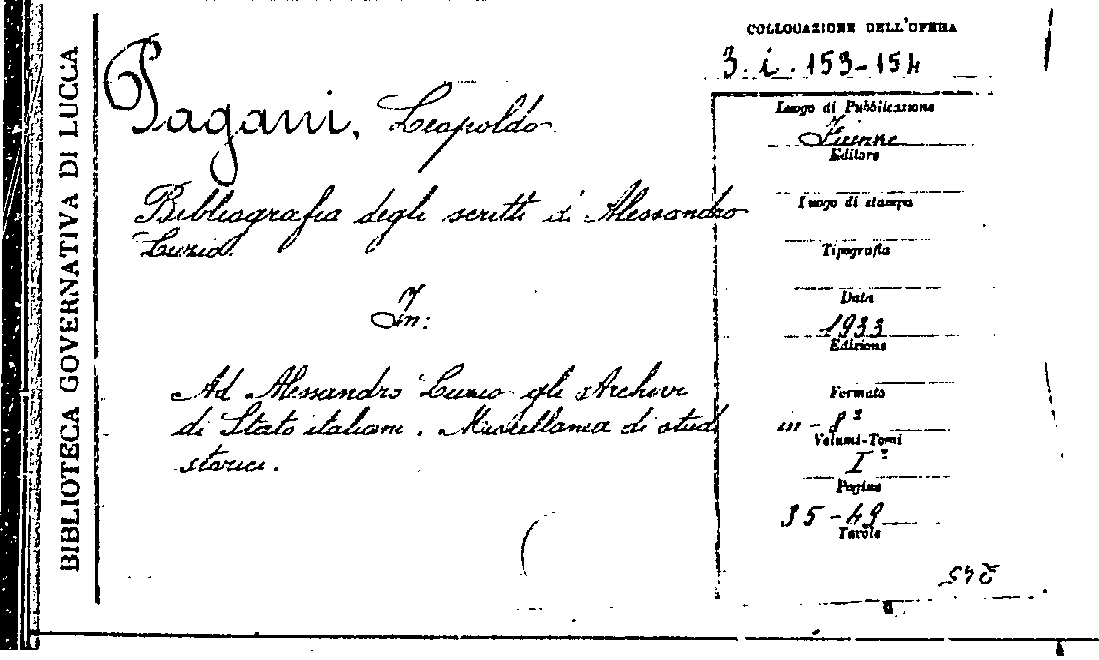 BIBLIOTECA GOVERNATIVA DI LUCCA
COLLOCAZIONE DELL'OPERA
3. i. 153-154
Pagani, Leopoldo
Bibliografia degli scritti di Alessandro
Luzio.
In:
Ad Alessandro Luzio gli Archivi
di Stato italiani. Miscellanea di studi
storici.
Luogo di Pubblicazione
Firenze
Editore
Luogo di stampa
Tipografia
Data
1933
Edizione
Formato
in-8º
Volumi-Tomi
Iº
Pagine
35-49
Tavole